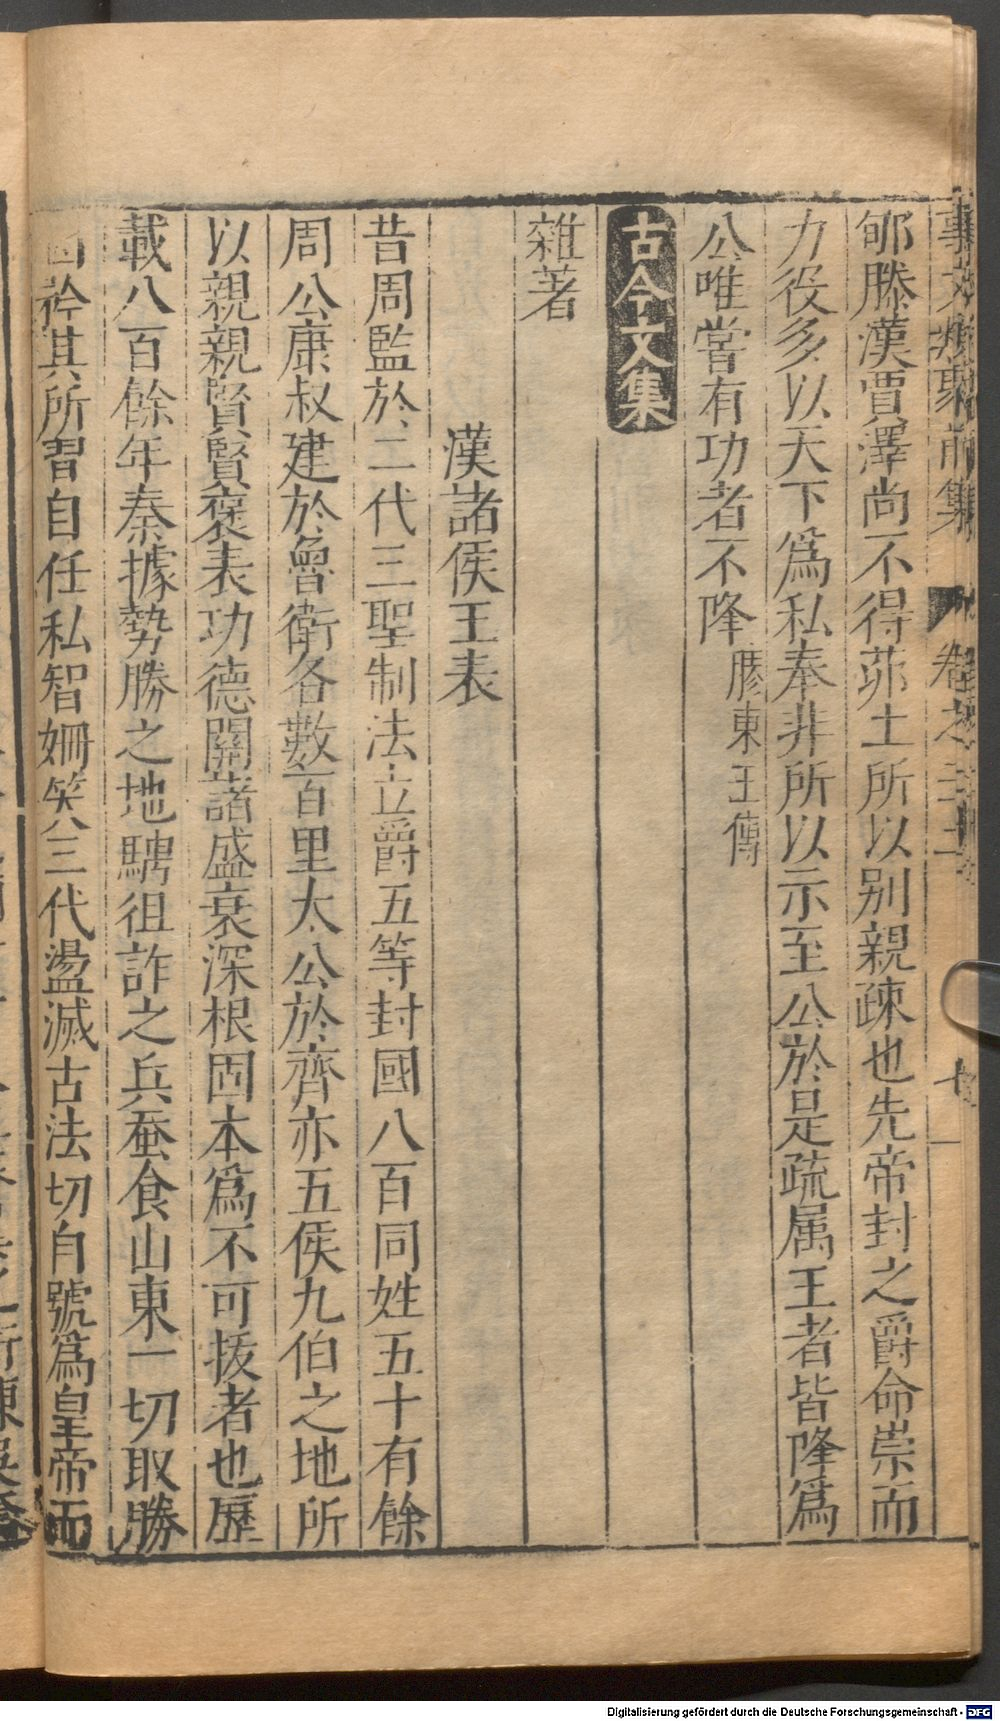 事文類聚前集 卷之二十
郇滕漢賈澤尚不得茆土所以别親疎也先帝封之爵命崇而
力役多以天下爲私奉非所以示至公於是疏属王者皆降爲
公唯嘗有功者不降膠東王傳
古今文集
雜著
漢諸侯王表
昔周監於二代三聖制法立爵五等封國八百同姓五十有餘
周公康叔建於魯衛各數百里太公於齊亦五侯九伯之地所
以親親賢賢褒表功德關諸盛衰深根固本爲不可拔者也歷
載八百餘年秦據勢勝之地騁狙詐之兵蚕食山東一切取勝
因矜其所習自任私智姍笑三代盪滅古法切自號爲皇帝而
Digitalisierung gefördert durch die Deutsche Forschungsgemeinschaft - DFG